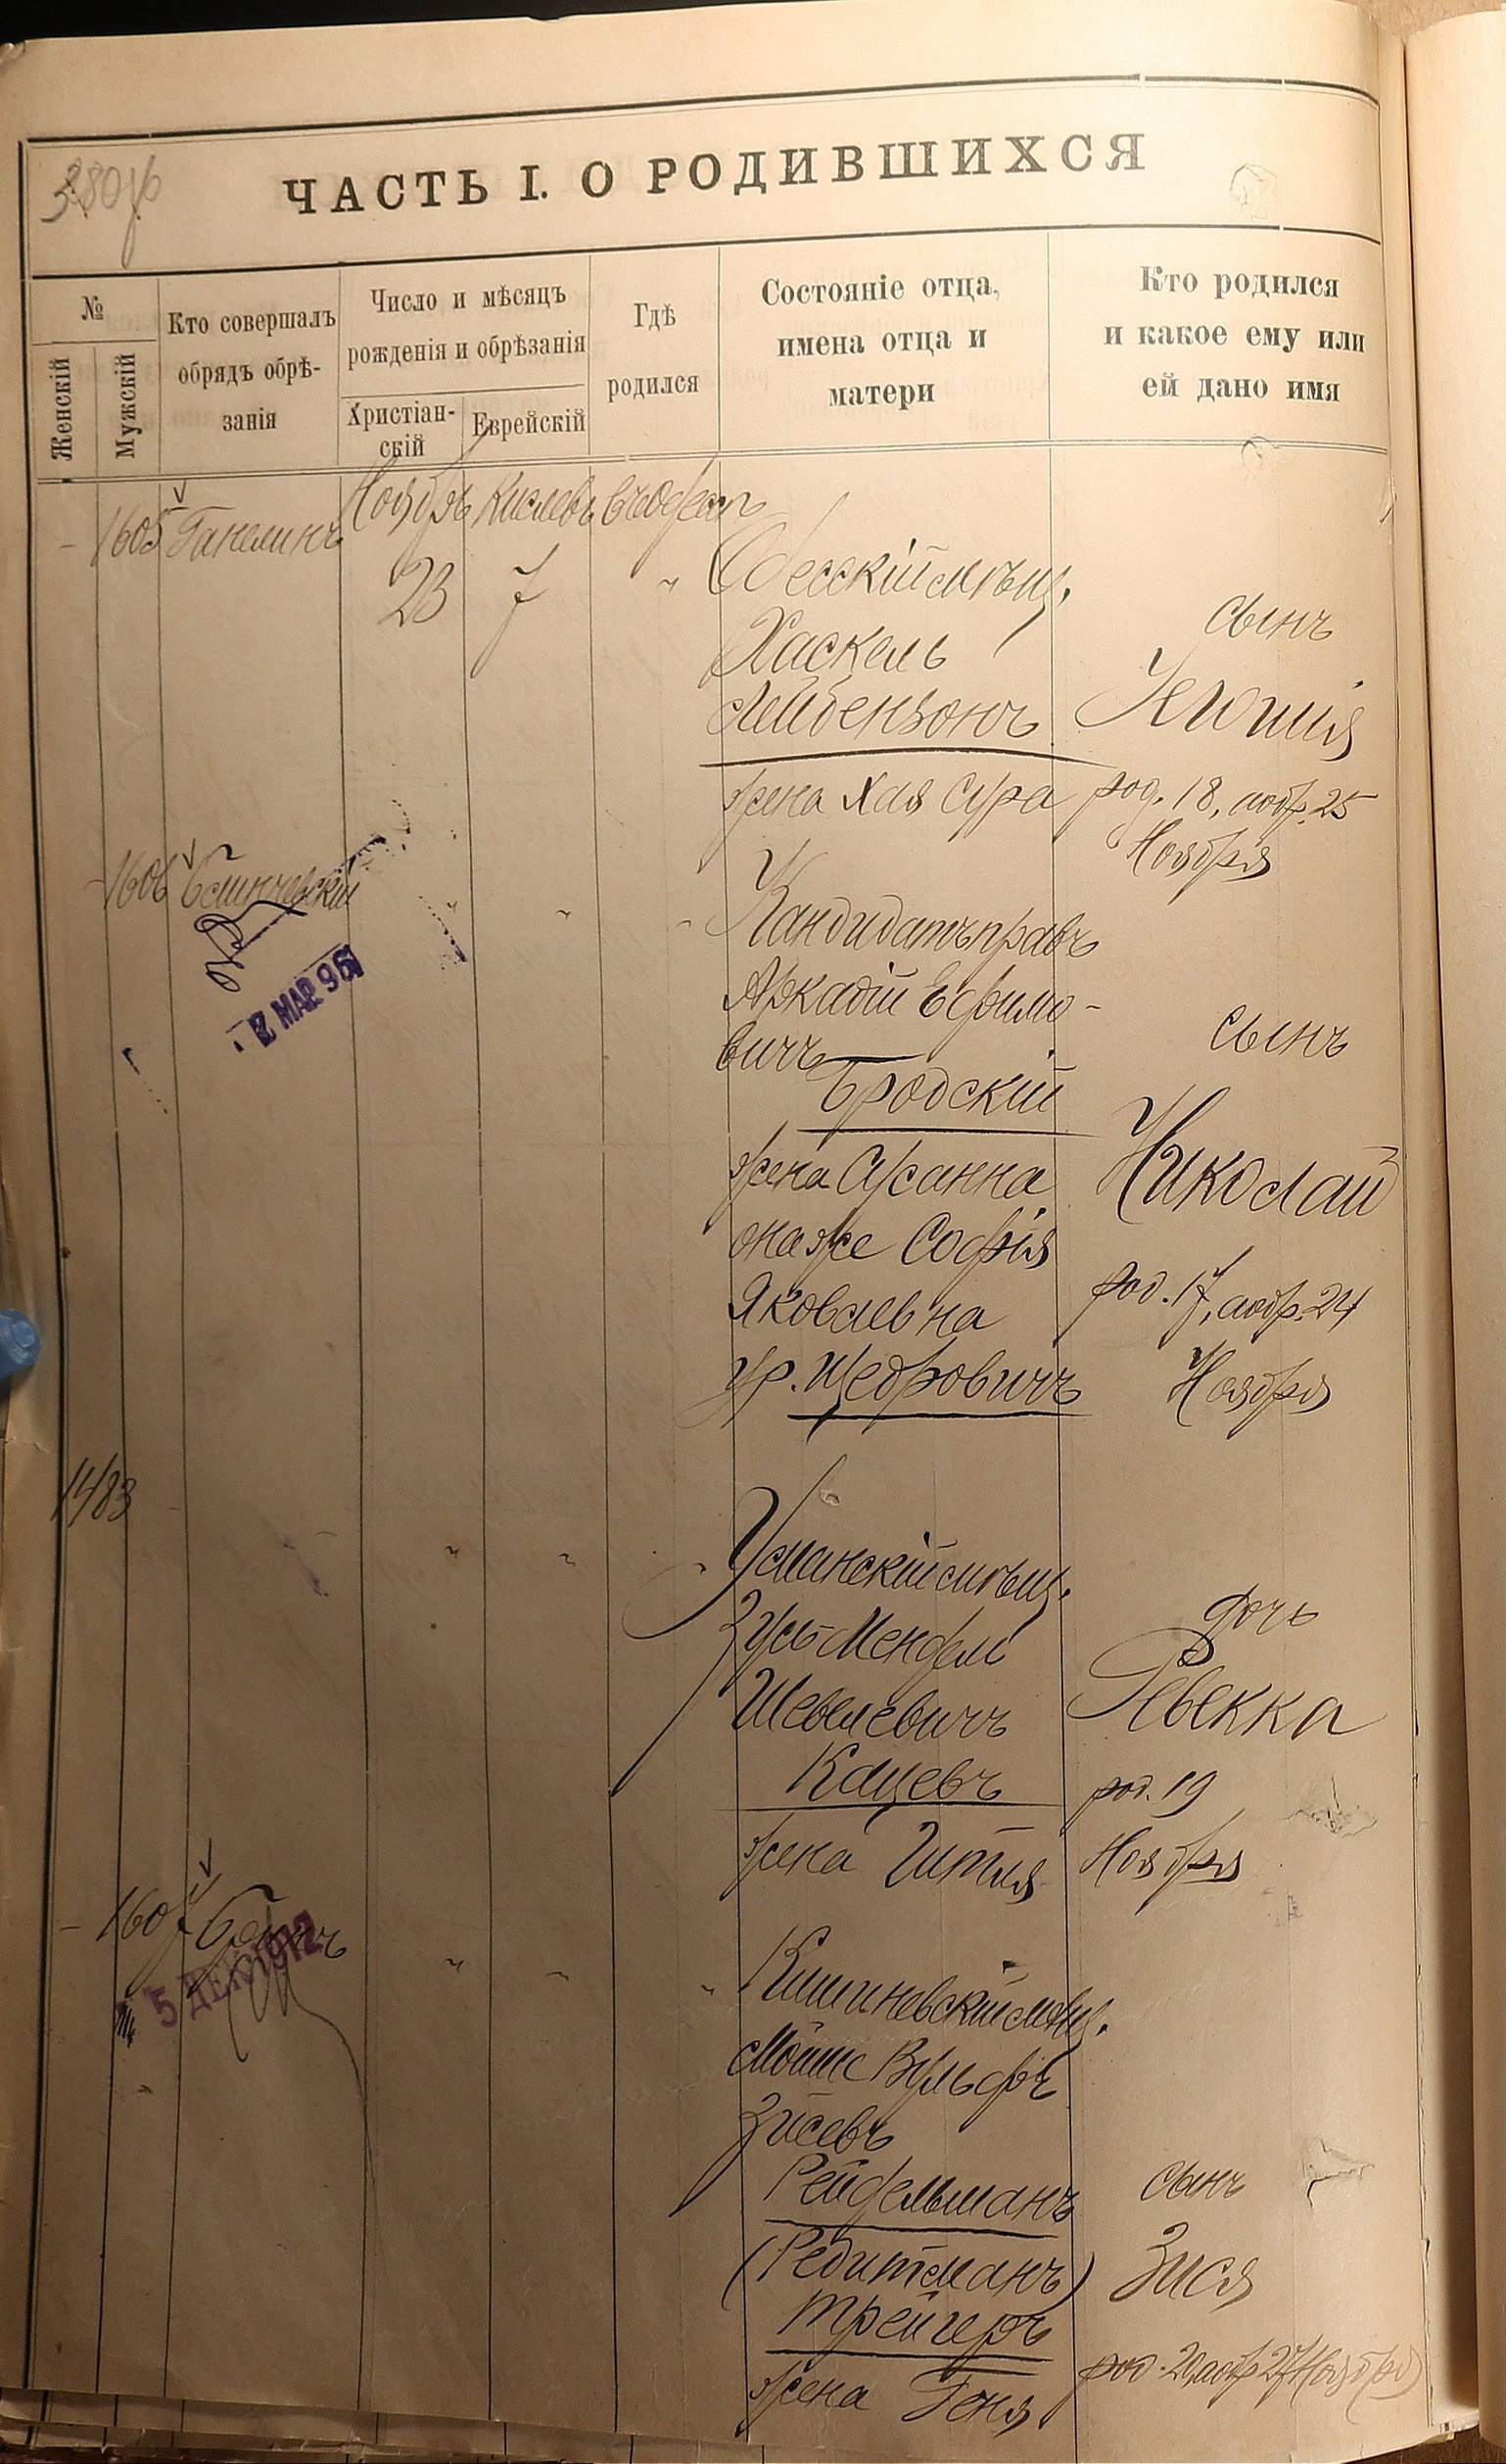 380
ЧАСТЬ I. О РОДИВШИХСЯ
№
Женскій
Мужскій
Кто совершалъ
обрядъ обрѣ-
занія
Число и мѣсяцъ
рожденія и обрѣзанія
Христіан-
скій
Еврейскій
Гдѣ
родился
Состояніе отца,
имена отца и
матери
Кто родился
и какое ему или
ей дано имя
1605 Ганелинъ Ноябрь Кислевъ въ Одессѣ
23 7 " Одесскій мѣщ.
Хаскель
Лейбензонъ
жена Хая Сура
сынъ
Іегошія
род. 18, аобр. 25
Ноября
1606 " " "
2 МАР. 96
Кандидатъ правъ
Аркадій Ефимо-
вичъ
Бродскій
жена Сусанна
она же Софія
Яковлевна
ур. Щедровичъ
сынъ
Николай
род. 17, аобр. 24
Ноября
1483 " " "
Уманскій мѣщ.
Зусь Мендель
Шевелевичъ
Кацевъ
жена Гитля
дочь
Ревекка
род. 19
Ноября
1607 " " "
5 ДЕК 1912
Кишиневскій мѣщ.
Мойше Вульфъ
Зисевъ
Рейдельманъ
(Редитманъ)
Трейгеръ
жена Геня
сынъ
Зися
род. 20, аобр 27 Ноября